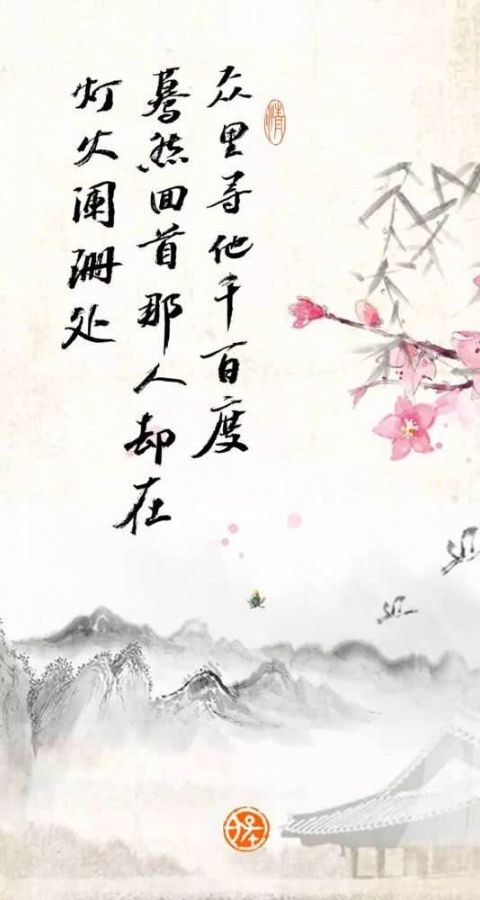 众里寻他千百度
蓦然回首那人却在
灯火阑珊处
情